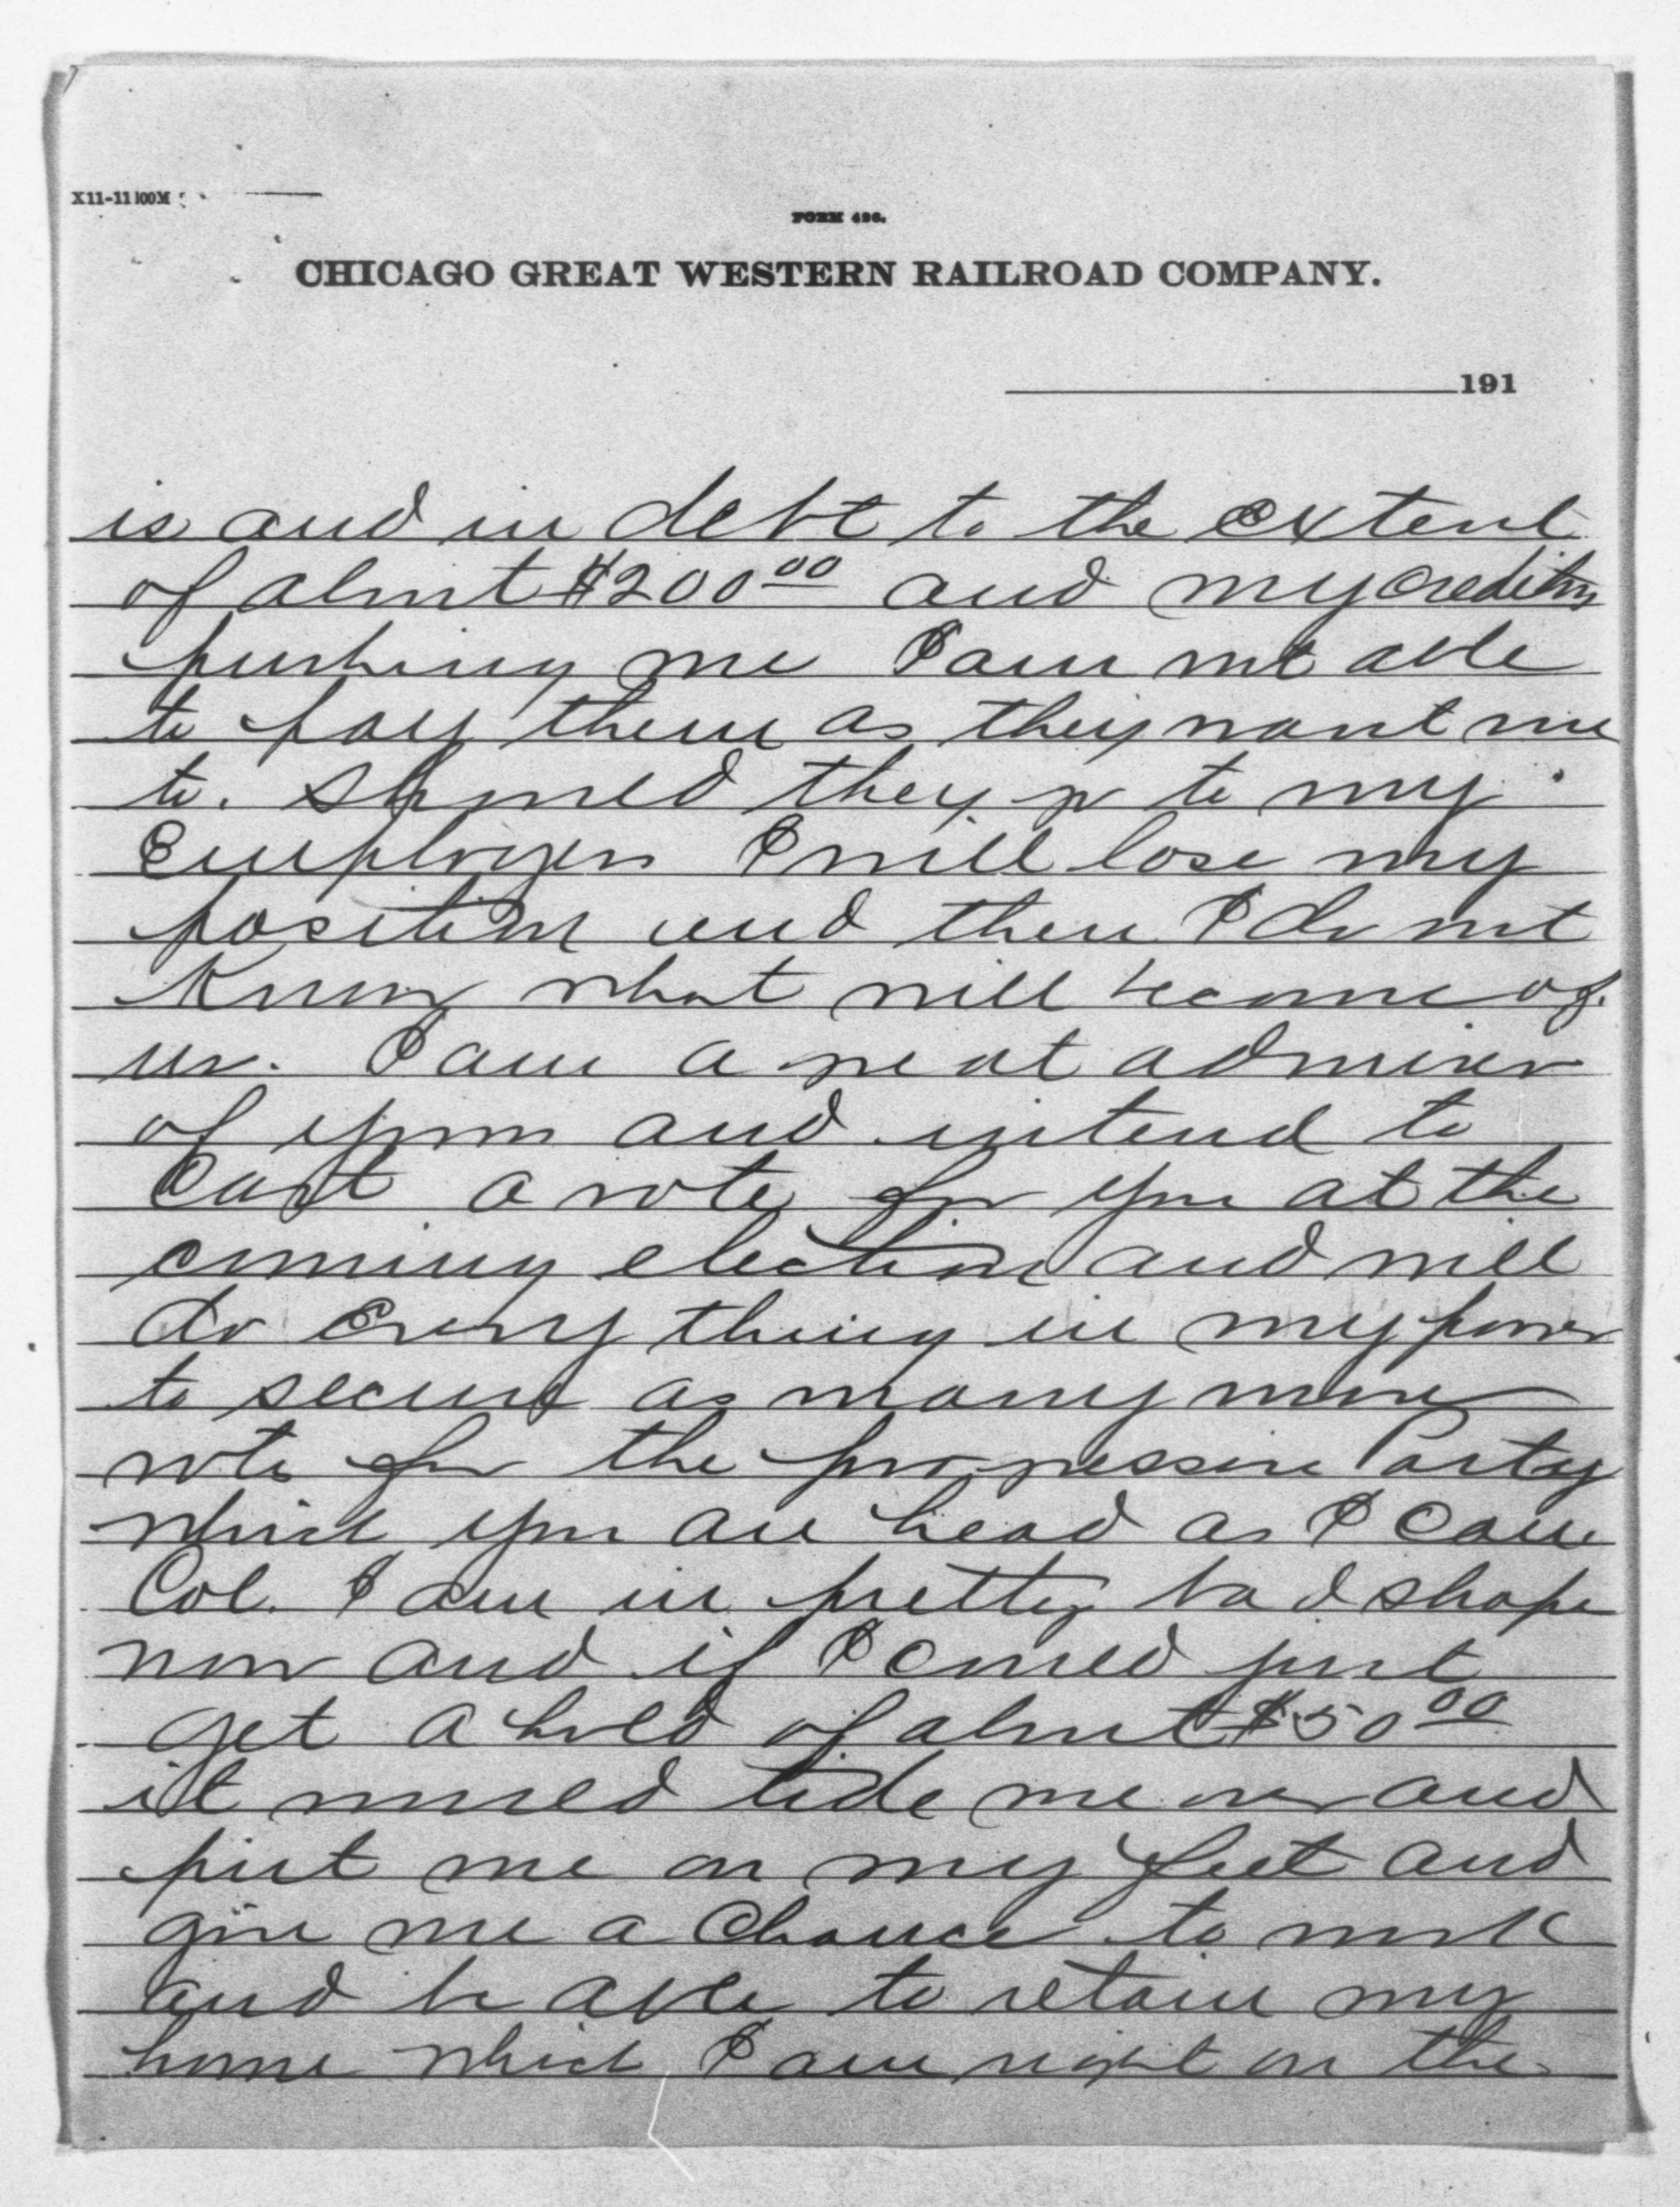 X11-11 100M
FORM 496.
CHICAGO GREAT WESTERN RAILROAD COMPANY.
191
is and in debt to the extent
of about $200 00 and my creditors
pushing me I am not able
to pay them as they want me
to. Should they go to my
Employers I will lose my
position and then I do not
know what will become of
us. I am a great admirer
of yours and intend to
cast a vote for you at the
coming election and will
do Every thing in my power
to secure as many more
vote for the progressive Party
which you are head as I can
Col. I am in pretty bad shape
now and if I could just
get a hold of about $50 00
it would tide me over and
put me on my feet and
give me a chance to work
and be able to retain my
home which I am right on the